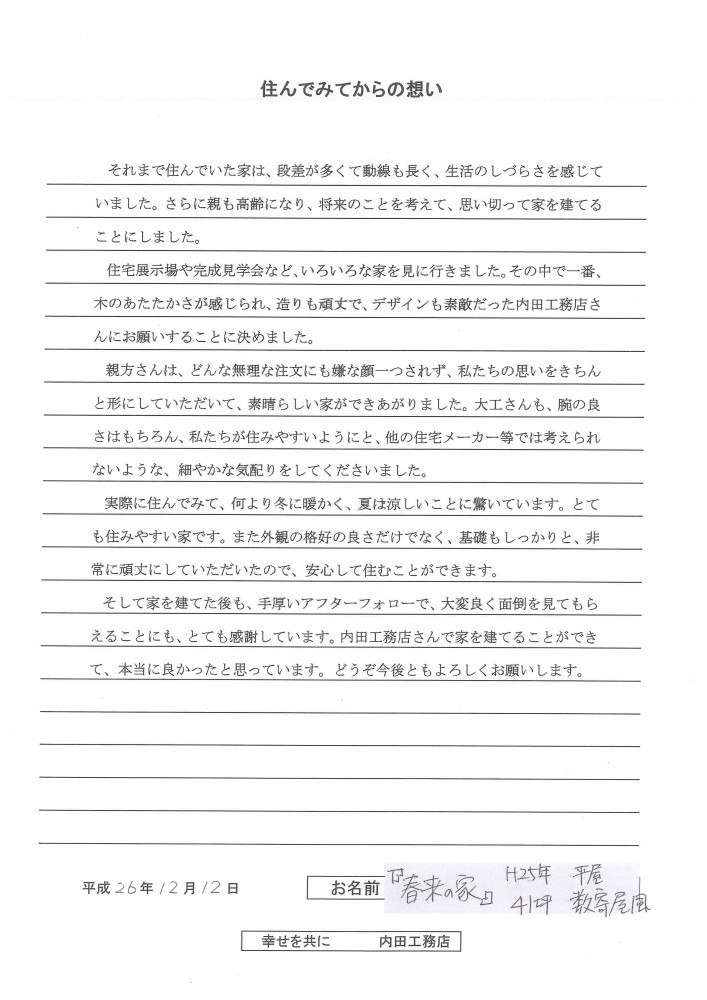 住んでみてからの想い
それまで住んでいた家は、段差が多くて動線も長く、生活のしづらさを感じて
いました。さらに親も高齢になり、将来のことを考えて、思い切って家を建てる
ことにしました。
住宅展示場や完成見学会など、いろいろな家を見に行きました。その中で一番、
木のあたたかさが感じられ、造りも頑丈で、デザインも素敵だった内田工務店さ
んにお願いすることに決めました。
親方さんは、どんな無理な注文にも嫌な顔一つされず、私たちの思いをきちん
と形にしていただいて、素晴らしい家ができあがりました。大工さんも、腕の良
さはもちろん、私たちが住みやすいようにと、他の住宅メーカー等では考えられ
ないような、細やかな気配りをしてくださいました。
実際に住んでみて、何より冬に暖かく、夏は涼しいことに驚いています。とて
も住みやすい家です。また外観の格好の良さだけでなく、基礎もしっかりと、非
常に頑丈にしていただいたので、安心して住むことができます。
そして家を建てた後も、手厚いアフターフォローで、大変良く面倒を見てもら
えることにも、とても感謝しています。内田工務店さんで家を建てることができ
て、本当に良かったと思っています。どうぞ今後ともよろしくお願いします。
平成26年12月12日 お名前 『春来の家』 H25年 平屋
41坪 数寄屋風
幸せを共に 内田工務店